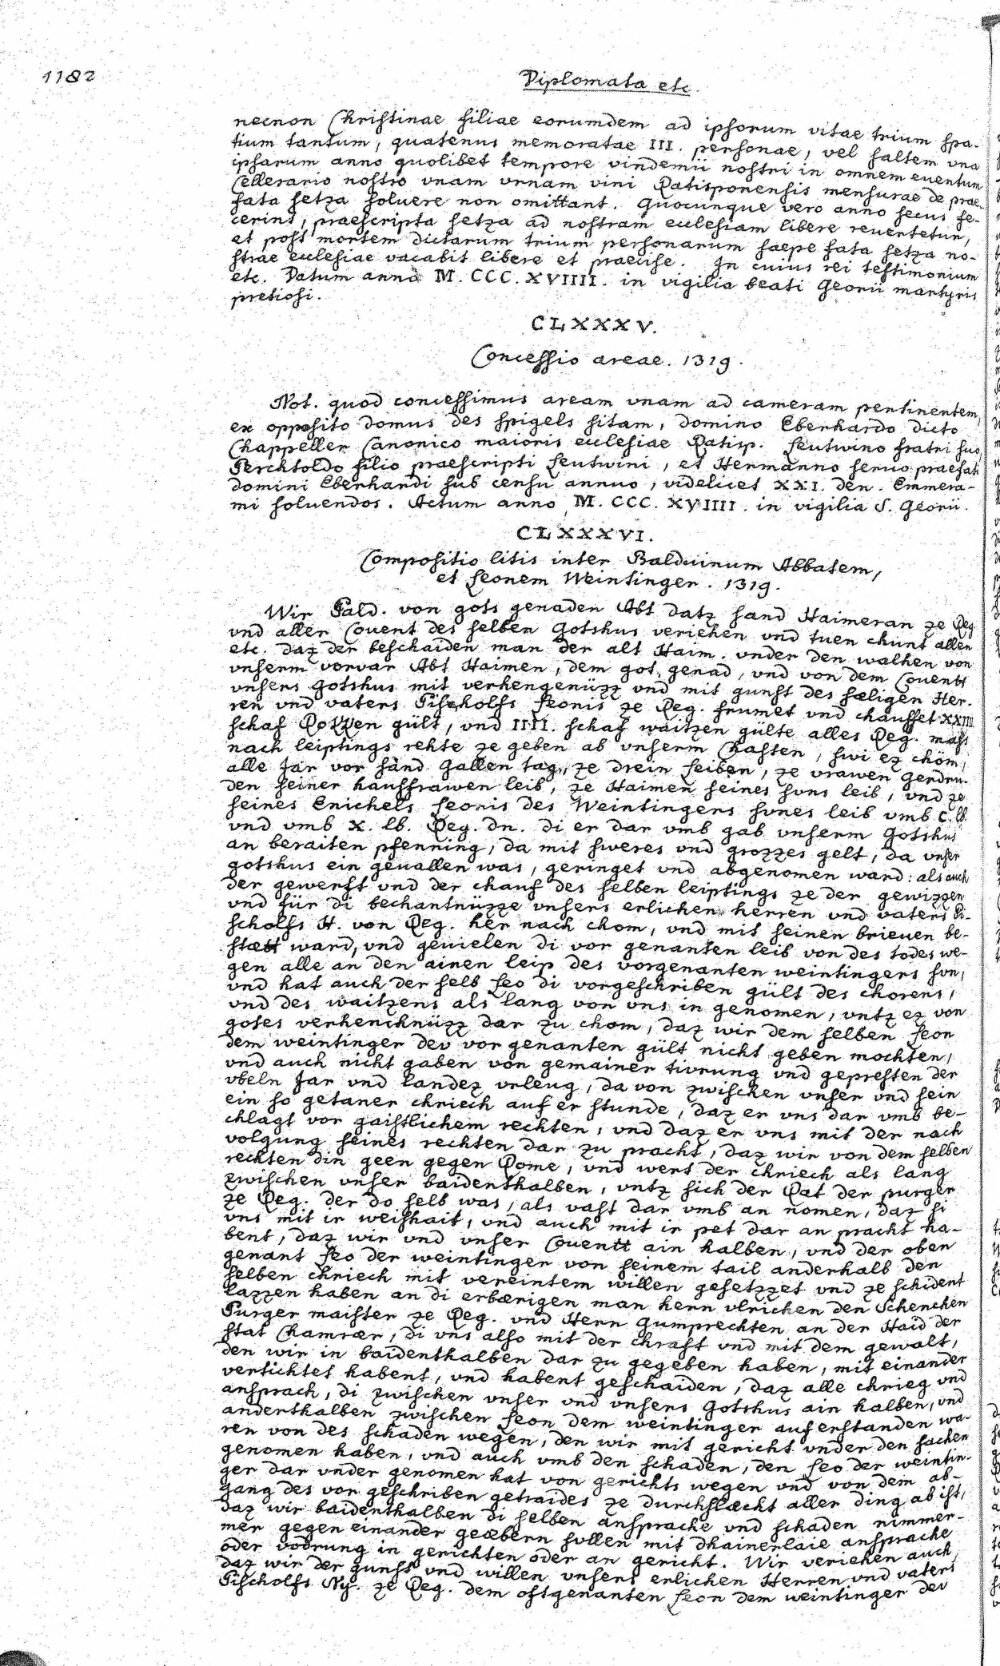 1182
Diplomata etc.
necnon Christinae filiae eorumdem ad ipsorum vitae trium spa-
tium tantum, quatenus memoratae III. personae, vel saltem una
ipsarum anno quolibet tempore vindemii nostri in omnem eventum
Cellerario nostro vnam vrnam vini Ratisponensis mensurae de prae-
fata setza soluere non omittant. Quocunque vero anno secus fe-
cerint, praescripta setza ad nostram ecclesiam libere reuertetur,
et post mortem dictarum trium personarum saepe fata setza no-
strae ecclesiae vacabit libere et praecise. In cuius rei testimonium
etc. Datum anno M. CCC. XVIIII. in vigilia beati Georii martyris
pretiosi.
CLXXXV.
Concessio areae. 1319.
Not. quod concessimus aream vnam ad cameram pertinentem,
ex opposito domus des Spigels sitam, domino Eberhardo dicto
Chappeller Canonico maioris ecclesiae Ratisp. Leutwino fratri suo,
Perchtoldo filio praescripti Leutwini, et Hermanno seruo praefati
domini Eberhardi sub censu annuo, videlicet XXI. den. Emmera-
mi soluendos. Actum anno M. CCC. XVIIII. in vigilia S. Georii.
CLXXXVI.
Compositio litis inter Balduinum Abbatem,
et Leonem Weintinger. 1319.
Wir Pald. von gots genaden Abt datz sand Haimeran ze Reg.
vnd aller Couent des selben Gotshus veriehen vnd tuen chunt allen
etc. daz der beschaiden man der alt Haim. vnder den walhen von
vnserm vorvar Abt Haimen, dem got genad, vnd von dem Couentt
vnsers Gotshus mit verhengenüzz vnd mit gunst des sæligen Her-
ren vnd vaters Pischolfs Leonis ze Reg. frumet vnd chauffet XXIIII
schaf Rokken gült, vnd IIII. schaf waitzen gülte alles Reg. mazs
nach leiptings rehte ze geben ab vnserm Chasten, swi ez chöm,
alle Jar vor sand Gallen tag, ze drein Leiben, ze vrawen Gerdru-
den seiner hausfrawen leib, ze Haimen seines suns leib, vnd ze
seines Enichels Leonis des Weintingers sunes leib vmb C. lb.
vnd vmb X. lb. Reg. dn. di er dar vmb gab vnserm Gotshus
an beraiten pfenning, da mit sweres vnd grozzes gelt, da vnser
gotshus ein geuallen was, geringet vnd abgenomen ward: als auch
der gewerft vnd der chauf des selben leiptings ze der gewizzen
vnd für di bechantnüzze vnsers erlichen herren vnd vaters Bi-
scholfs H. von Reg. her nach chom, vnd mit seinen brieuen be-
stætt ward, vnd geuielen di vor genanten leib von des todes we-
gen alle an den ainen leip des vorgenanten weintingers sun,
vnd hat auch der selb Leo di vorgeschriben gült des chorens,
vnd des waitzens als lang von vns in genomen, vntz ez von
gotes verhencknüzz dar zu chom, daz wir dem selben Leon
dem weintinger dev vor genanten gült nicht geben mochten,
vnd auch nicht gaben von gemainer tivrung vnd gepresten der
vbeln Jar vnd landez vrleug, da von zwischen vnser vnd sein
ein so getaner chriech auf er stunde, daz er vns dar vmb be-
chlagt vor gaistlichem rechten, vnd daz er vns mit der nach
volgung seines rechten dar zu pracht, daz wir von dem selben
rechten din geen gegen Rome, vnd wert der chriech als lang
zwischen vnser baidenthalben, vntz sich der Rat der purger
ze Reg. der do selb was, als vast dar vmb an nomen, daz si
vns mit ir weishait, vnd auch mit ir pet dar an pracht ha-
bent, daz wir vnd vnser Couentt ain halben, vnd der oben
genant Leo der weintinger von seinem tail anderhalb den
selben chriech mit vereintem willen gesetzzet vnd ze schident
lazzen haben an di erbærigen man hern vlrichen den Schenchen
Purger maister ze Reg. vnd Hern Gumprechten an der Haid der
stat Chamrær, di vns also mit der chraft vnd mit dem gewalt,
den wir in baidenthalben dar zu gegeben haben, mit einander
verlichtet habent, vnd habent geschaiden, daz alle chrieg vnd
ansprach, di zwischen vnser vnd vnsers Gotshus ain halben, vnd
anderthalben zwischen Leon dem weintinger auf erstanden wa-
ren von des schaden wegen, den wir mit gericht vnder den sachen
genomen haben, vnd auch vmb den schaden, den Leo der weintin-
ger dar vnder genomen hat von gerichts wegen vnd von dem ab-
gang des vor geschriben getraides ze durchslæcht aller ding ab ist,
daz wir baidenthalben di selben ansprache vnd schaden nimmer-
mer gegen einander geæbern sullen mit dhainerlaie ansprache
oder vodrung in gerichten oder an gericht. Wir veriehen auch
daz wir der gunst vnd willen vnsers erlichen Herren vnd vaters
Pischolfs Ny. ze Reg. dem oftgenanten Leon dem weintinger dev